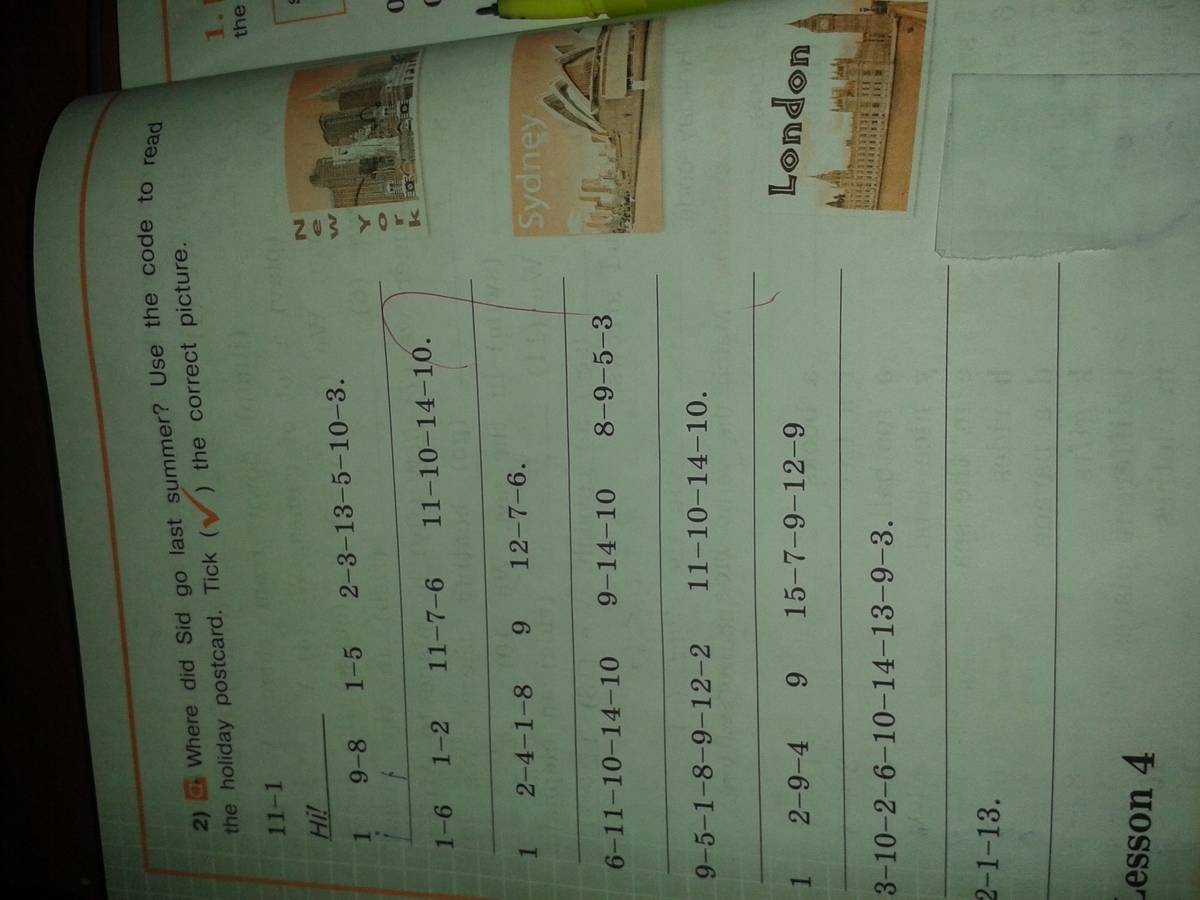 1.
the
2) Where did Sid go last summer? Use the code to read
the holiday postcard. Tick (✓) the correct picture.
11–1
Hi!
1 9–8 1–5 2–3–13–5–10–3.
1–6 1–2 11–7–6 11–10–14–10.
1 2–4–1–8 9 12–7–6.
6–11–10–14–10 9–14–10 8–9–5–3
9–5–1–8–9–12–2 11–10–14–10.
1 2–9–4 9 15–7–9–12–9
3–10–2–6–10–14–13–9–3.
2–1–13.
New York
Sydney
London
Lesson 4